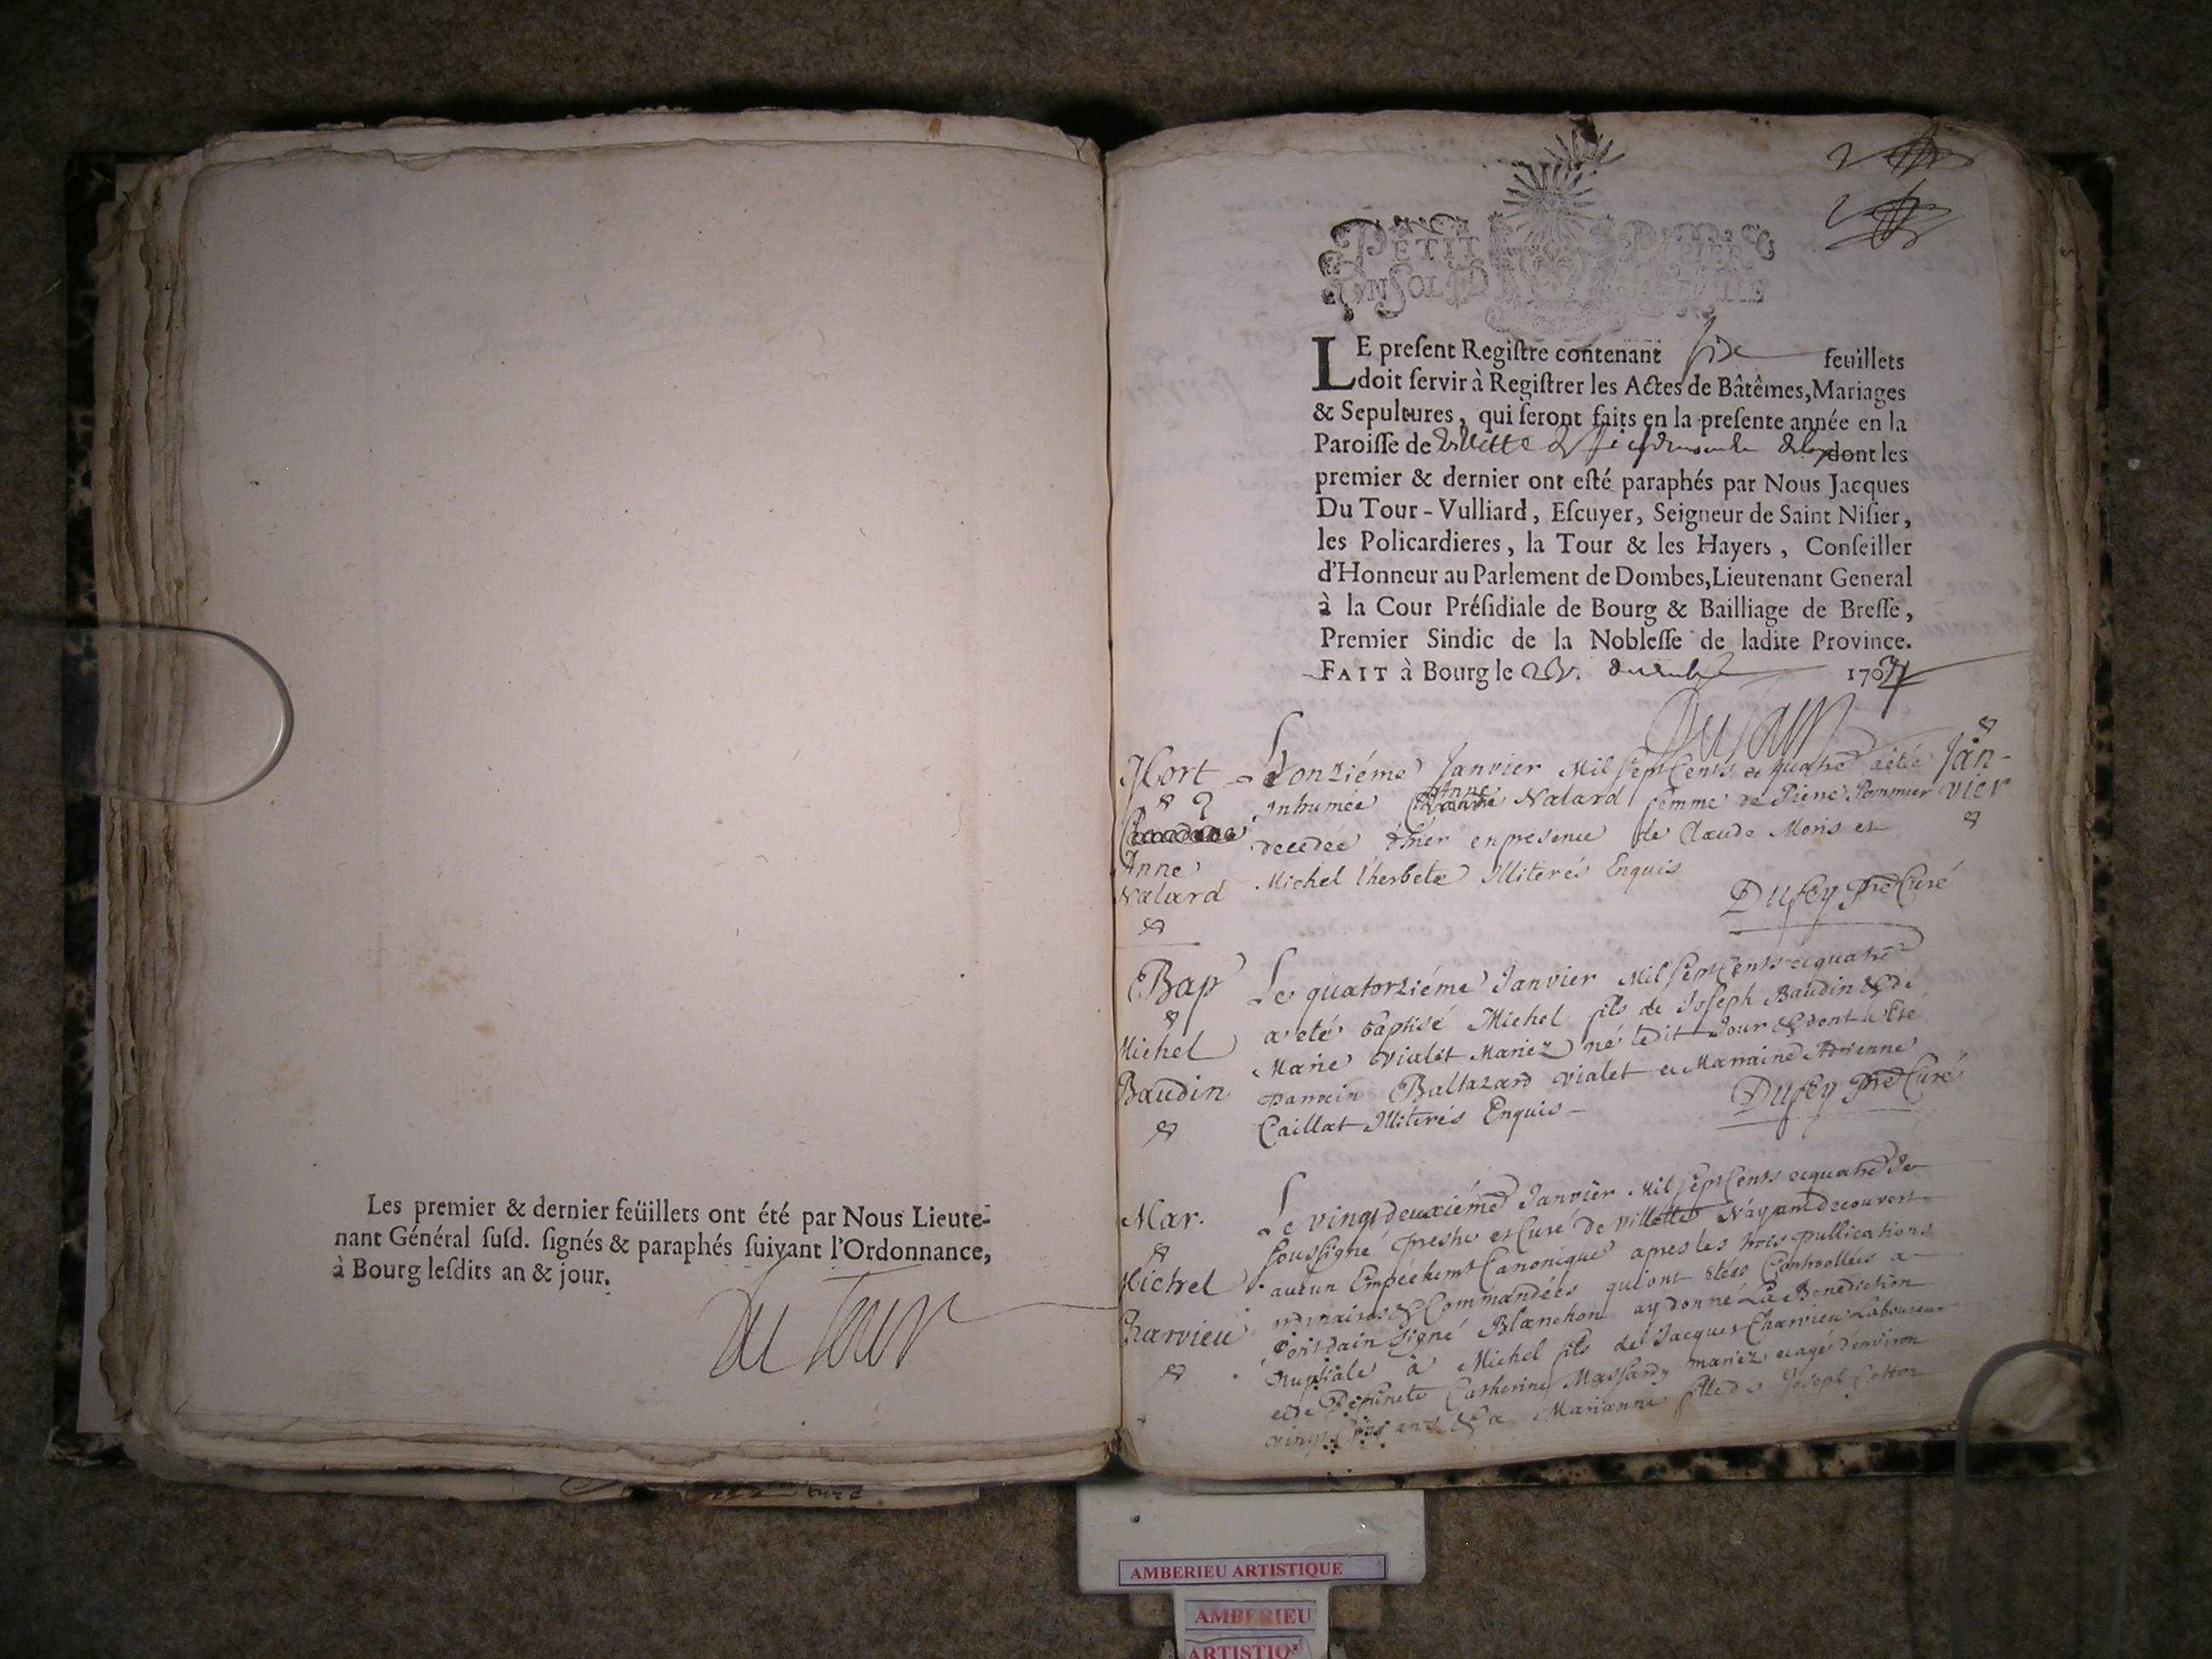 Les premier & dernier feüillets ont été par Nous Lieute-
nant Général susd. signés & paraphés suivant l'Ordonnance,
à Bourg lesdits an & jour.
Du Tour
PETIT PAPIER
UN SOL
LE present Registre contenant six feuillets
doit servir à Registrer les Actes de Bâtêmes, Mariages
& Sepultures, qui seront faits en la presente année en la
Paroisse de Villette dont les
premier & dernier ont esté paraphés par Nous Jacques
Du Tour-Vulliard, Escuyer, Seigneur de Saint Nisier,
les Policardieres, la Tour & les Hayers, Conseiller
d'Honneur au Parlement de Dombes, Lieutenant General
à la Cour Présidiale de Bourg & Bailliage de Bresse,
Premier Sindic de la Noblesse de ladite Province.
FAIT à Bourg le decembre 170
Du Tour
Mort
Anne
Nalard
Jan-
vier
Le onziéme Janvier Mil sept Cents et quatre a été
inhumée Anne Nalard femme de Piere Pommier
decedée d'hier en presence de Claude Moris et
Michel l'herbete Illiterés Enquis
Dufey pre Curé
Bap
Michel
Baudin
Le quatorziéme Janvier Mil sept Cents et quatre
a eté baptisé Michel fils de Joseph Baudin & de
Marie Vialet Mariez né ledit Jour & dont a été
parrain Baltazard Vialet et Marraine Adrienne
Caillat Illiterés Enquis
Dufey pre Curé
Mar.
Michel
Charvieu
Le vingt deuxiéme Janvier Mil sept Cents et quatre Je
soussigné prestre et Curé de Villette N'áyant decouvert
aucun Empéchemt Canonique apres les trois publications
ordinaires & Commandées qui ont étées Controollées a
Pont dain Signé Blanchon ay donné La Benediction
Nuptiale à Michel fils de Jacques Charvieu Laboureur
et de Catherine Massard mariez et agé d'environ
vingt ans & a Marianne fille de Joseph Cottor
AMBERIEU ARTISTIQUE
AMBERIEU
ARTISTIQ